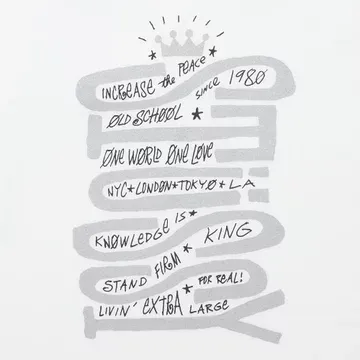 INCREASE the PEACE SINCE 1980
OLD SCHOOL ★
ONE WORLD ONE LOVE
NYC★LONDON★TOKYO★LA
KNOWLEDGE IS KING
STAND FIRM ★ FOR REAL!
LIVIN' EXTRA LARGE